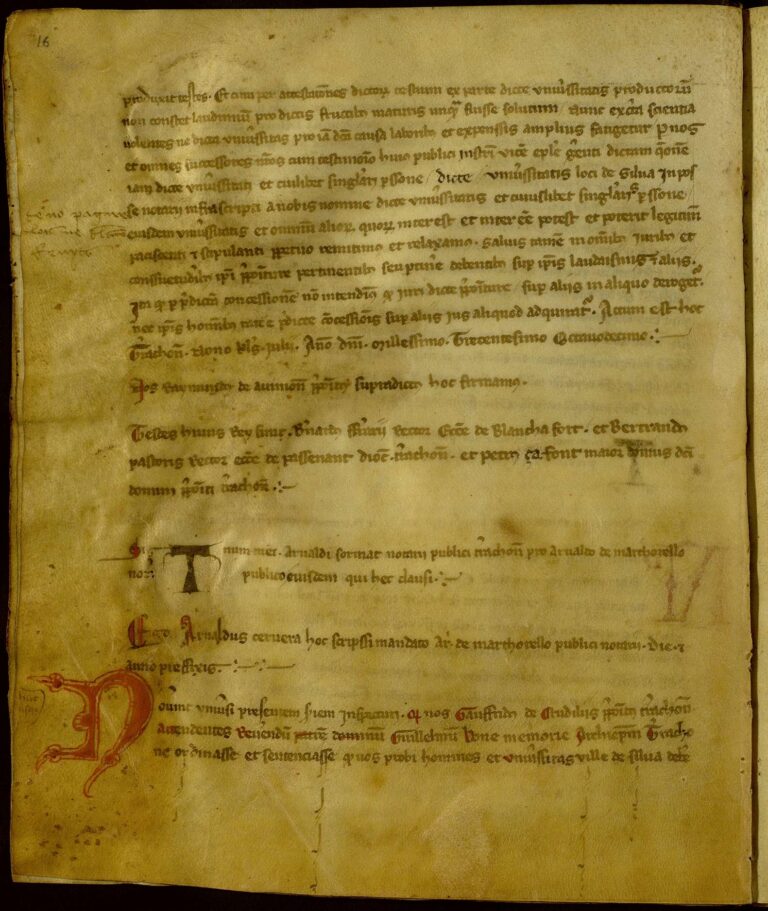 16
produxit testes. Et cum per attestationes dictorum testium ex parte dicte universitatis productorum
non constet laudimium pro dictis fructibus maturis unquam fuisse solutum nunc ex certa scientia
volentes ne dicta universitas pro iam dicta causa laboribus et expensis amplius fatigetur per nos
et omnes successores nostros cum testimonio huius publici instrumenti vicem epistole gerenti dictam questionem
iam dicte universitati et cuilibet singulari persone dicte universitatis loci de Silva in pos
se notarii infrascripti a nobis nomine dicte universitatis et cuiuslibet singularis persone
eiusdem universitatis et omnium aliorum quorum interest et interesse potest et poterit legitime
paciscenti et stipulanti perpetuo remitimus et relaxamus. Salvis tamen in omnibus iuribus et
consuetudinibus ipsi prepositure pertinentibus seu pertinere debentibus super ipsis laudismiis et aliis.
Ita quod per predictam concessionem non intendimus quod iuri dicte prepositure super aliis in aliquo derogetur.
nec ipsis hominibus ratione predicte concessionis super aliis ius aliquod adquiratur. Actum est hoc
Terrachone. Nono kalendas iulii. Anno domini Millessimo. Trecentesimo Octavodecimo.
Nos Raymundus de avinione prepositus supradictus hoc firmamus.
Testes huius rey sunt. Bernardus rector Ecclesie de Blancha fort. et Bertrandus
pastoris Rector ecclesie de passenant diocesis terrachone. et petrus ça font maior domus dicti
domini prepositi terrachone.
Sig T num mei. Arnaldi sormat notarii publici terrachone pro Arnaldo de marthorello
not. publico eiusdem qui hec clausi.
Ego Arnaldus cervera hoc scripssi mandato Ar. de marthorello publici notarii. Die et
anno prefixis.
Noverint universi presentem seriem inspecturi. quod nos Gauffridus de Crudiliis prepositus terrachone
attendentes Reverendum patrem dominum Guillelmum bone memorie Archiepiscopum Terracho
ne ordinasse et sentenciasse quod nos probi homines et universitas ville de silva debe